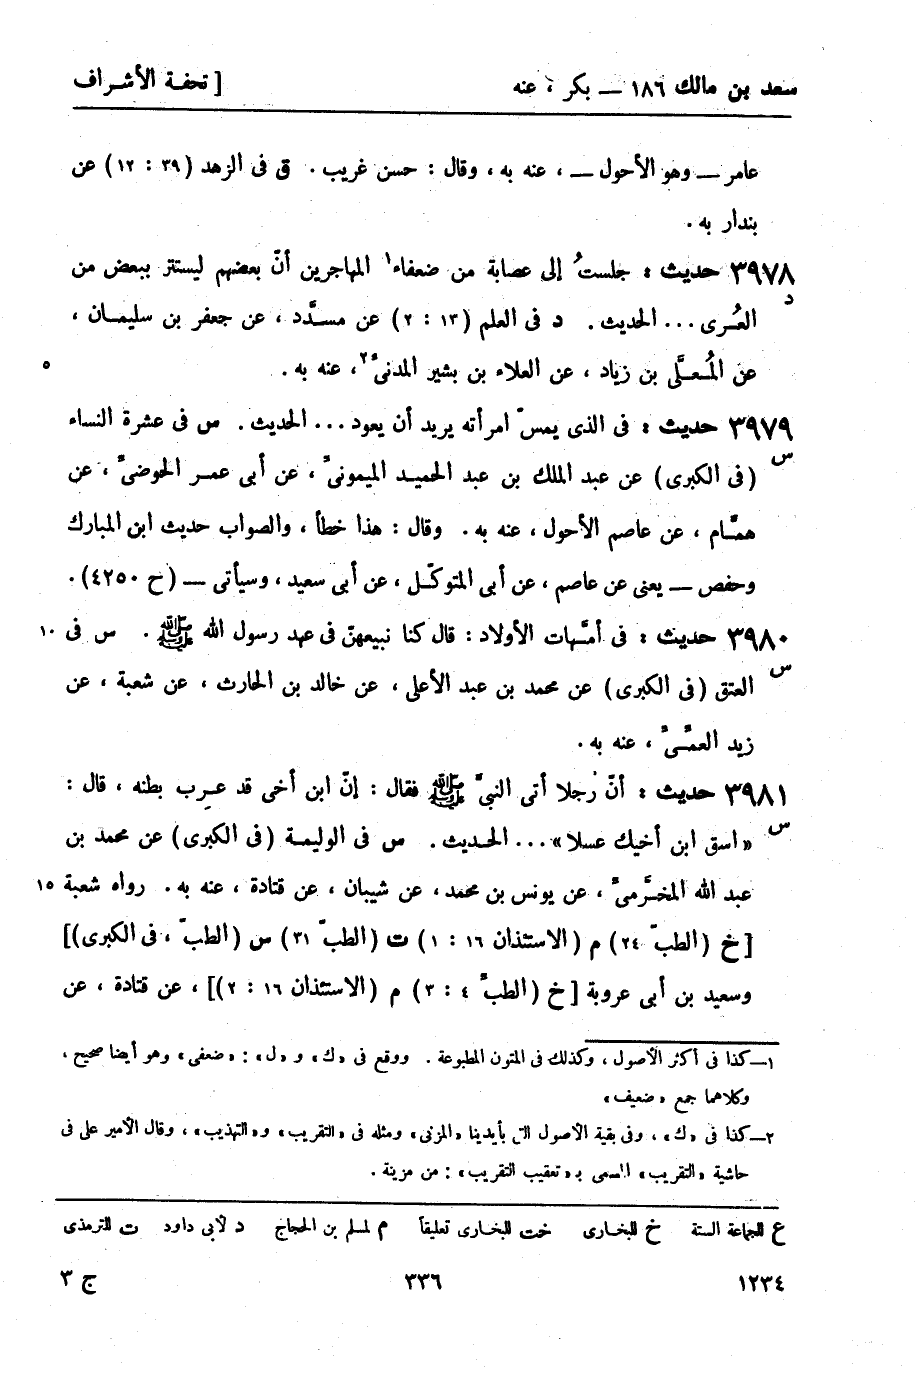 سعد بن مالك ١٨٦ — بكر ، عنه [ تحفة الأشراف
عامر — وهو الأحول — ، عنه به ، وقال : حسن غريب . ق فى الزهد (٣٩ : ١٢) عن
بندار به .
٣٩٧٨ حديث : جلستُ إلى عصابة من ضعفاء١ المهاجرين أنّ بعضهم ليستتر ببعض من
د
العُرى ... الحديث . د فى العلم (١٣ : ٢) عن مسدَّد ، عن جعفر بن سليمان ،
عن المُعلَّى بن زياد ، عن العلاء بن بشير المدنىّ٢ ، عنه به . ٥
٣٩٧٩ حديث : فى الذى يمسّ امرأته يريد أن يعود ... الحديث . س فى عشرة النساء
س
(فى الكبرى) عن عبد الملك بن عبد الحميد الميمونىّ ، عن أبى عمر الحوضىّ ، عن
همَّام ، عن عاصم الأحول ، عنه به . وقال : هذا خطأ ، والصواب حديث ابن المبارك
وحفص — يعنى عن عاصم ، عن أبى المتوكّل ، عن أبى سعيد ، وسيأتى — (ح ٤٢٥٠) .
٣٩٨٠ حديث : فى أمَّهات الأولاد : قال كنا نبيعهنّ فى عهد رسول الله ﷺ . س فى ١٠
س
العتق (فى الكبرى) عن محمد بن عبد الأعلى ، عن خالد بن الحارث ، عن شعبة ، عن
زيد العمّىّ ، عنه به .
٣٩٨١ حديث : أنّ رُجلا أتى النبىّ ﷺ فقال : إنّ ابن أخى قد عرب بطنه ، قال :
س
«اسق ابن أخيك عسلا» ... الحديث . س فى الوليمة (فى الكبرى) عن محمد بن
عبد الله المخرَّمىّ ، عن يونس بن محمد ، عن شيبان ، عن قتادة ، عنه به . رواه شعبة ١٥
[خ (الطبّ ٢٤) م (الاستئذان ١٦ : ١) ت (الطبّ ٣١) س (الطبّ ، فى الكبرى)]
وسعيد بن أبى عروبة [خ (الطبّ ٤ : ٣) م (الاستئذان ١٦ : ٢)] ، عن قتادة ، عن
١— كذا فى أكثر الأصول ، وكذلك فى المتون المطبوعة . ووقع فى «ك» و «ل» : «ضعفى» وهو أيضا صحيح ،
وكلاهما جمع «ضعيف»
٢— كذا فى «ك» ، وفى بقية الأصول التى بأيدينا «المزنى» ومثله فى «التقريب» و«التهذيب» ، وقال الأمير على فى
حاشية «التقريب» المسمى بـ «تعقيب التقريب» : من مزينة .
ع للجماعة الستة خ للبخارى خت للبخارى تعليقاً م لمسلم بن الحجاج د لأبى داود ت للترمذى
١٢٣٤ ٣٣٦ ج ٣